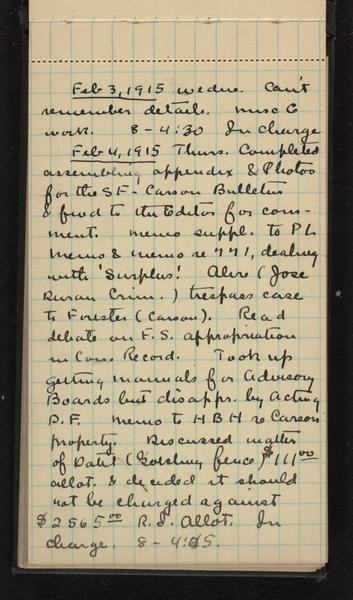 Feb 3, 1915 wedne. Can't
remember detail. misc G
work. 8 - 4:30 In charge
Feb 4, 1915 Thurs. Completed
assembling appendix & Photos
for the SF-Carson Bulletin
& fwd to the Editor for com-
ment. memo suppl. to PL
memo & memo re 771, dealing
with 'Surplus'. Also (Jose
Duran Crim.) trespass case
to Forester (Carson). Read
debate on F.S. appropriation
in Con. Record. Took up
getting manuals for Advisory
Boards but disappr. by Acting
D.F. memo to HBH re Carson
property. Discussed matter
of Datil ( fence) $111.00
allot. & decided it should
not be charged against
$2565.00 R.I. Allot. In
charge. 8 - 4:45.